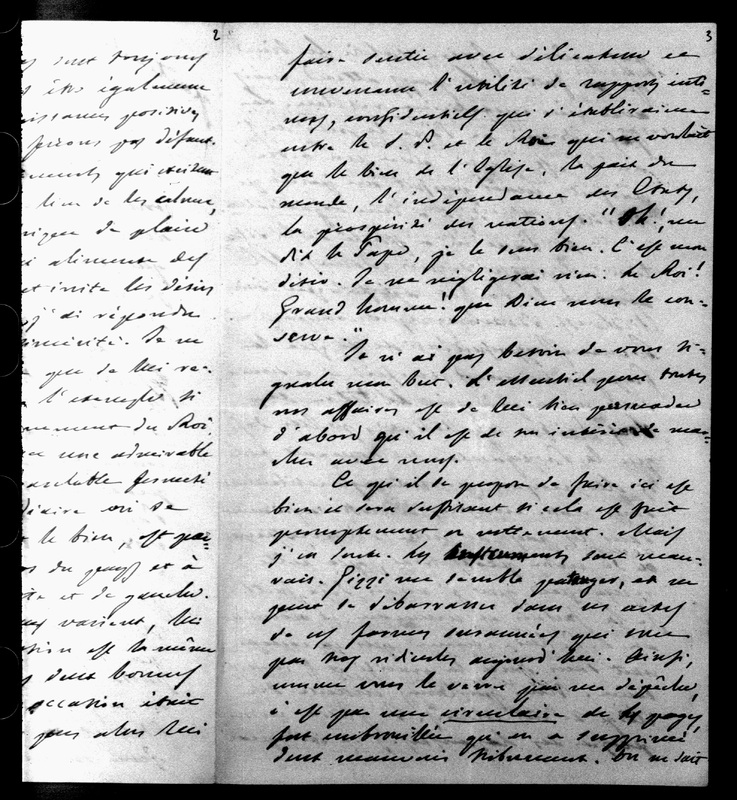 2
ns sont toujours
être également
puissances positives
ferions pas défaut.
qui existent
lieu de les calmer,
de plaire
alimente des
et invite les désirs
j'ai répondu
Je ne
que de lui re-
l'exemple si
du Roi
une admirable
fermeté
où se
le bien, est par-
du pays et à
et de gauche.
varient, lui
est la même
sont bonnes
occasion était
pour alors lui
3
faire sentir avec délicatesse et
convenance l'utilité de rapports inti-
mes, confidentiels qui s'établiraient
entre le S. P. et le Roi qui ne voulait
que le bien de l'Eglise, la paix du
monde, l'indépendance des Etats,
la prospérité des nations. "Oh!, me
dit le Pape, je le sais bien. C'est mon
désir. Je ne négligerai rien. Le Roi!
Grand homme! que Dieu nous le con-
serve."
Je n'ai pas besoin de vous si-
gnaler mon but. L'essentiel pour toutes
nos affaires est de lui bien persuader
d'abord qu'il est de son intérêt de mar-
cher avec nous.
Ce qu'il se propose de faire ici est
bien et sera suffisant si cela est fait
promptement et nettement. Mais
j'en doute. Les instruments sont mau-
vais. Gizzi me semble patauger, et ne
peut se débarrasser dans ses actes
de ces formes surannées qui sont
par trop ridicules aujourd'hui. Ainsi,
comme vous le verrez par ma dépêche,
c'est par une circulaire de 4 pages,
fort embrouillée qu'on a supprimé
deux mauvais tribunaux. On ne sait